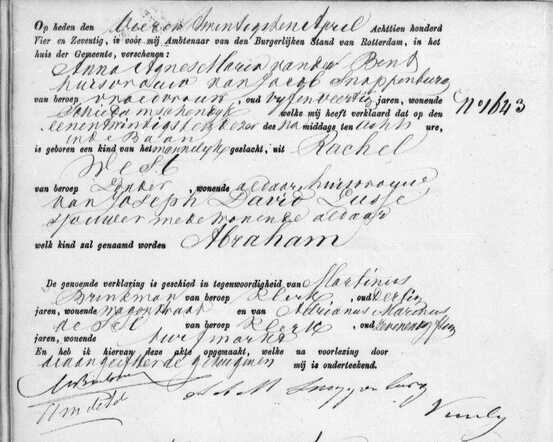 Op heden den Vier en Twintigsten April Achttien honderd
Vier en Zeventig, is vóór mij Ambtenaar van den Burgerlijken Stand van Rotterdam, in het
huis der Gemeente, verschenen:
Anna Agnes Maria van den Bent
huisvrouw van Jacob Snappenburg
van beroep vroedvrouw, oud vyfenveertig jaren, wonende
Schiedamschendyk welke mij heeft verklaard dat op den
eenentwintigsten dezer des na middags ten acht ure, No 1643
in de Baan
is geboren een kind van het mannelyk geslacht, uit Rachel
West
van beroep , wonende aldaar huisvrouw
van Joseph David Lusse
mede wonende aldaar
welk kind zal genaamd worden Abraham
De genoemde verklaring is geschied in tegenwoordigheid van Martinus
Brinkman van beroep Klerk, oud Dertig
jaren, wonende en van Adrianus Marcelus
van beroep Klerk, oud
jaren, wonende turfmarkt
En heb ik hiervan deze akte opgemaakt, welke na voorlezing door
de aangeefster de getuigen en mij is onderteekend.